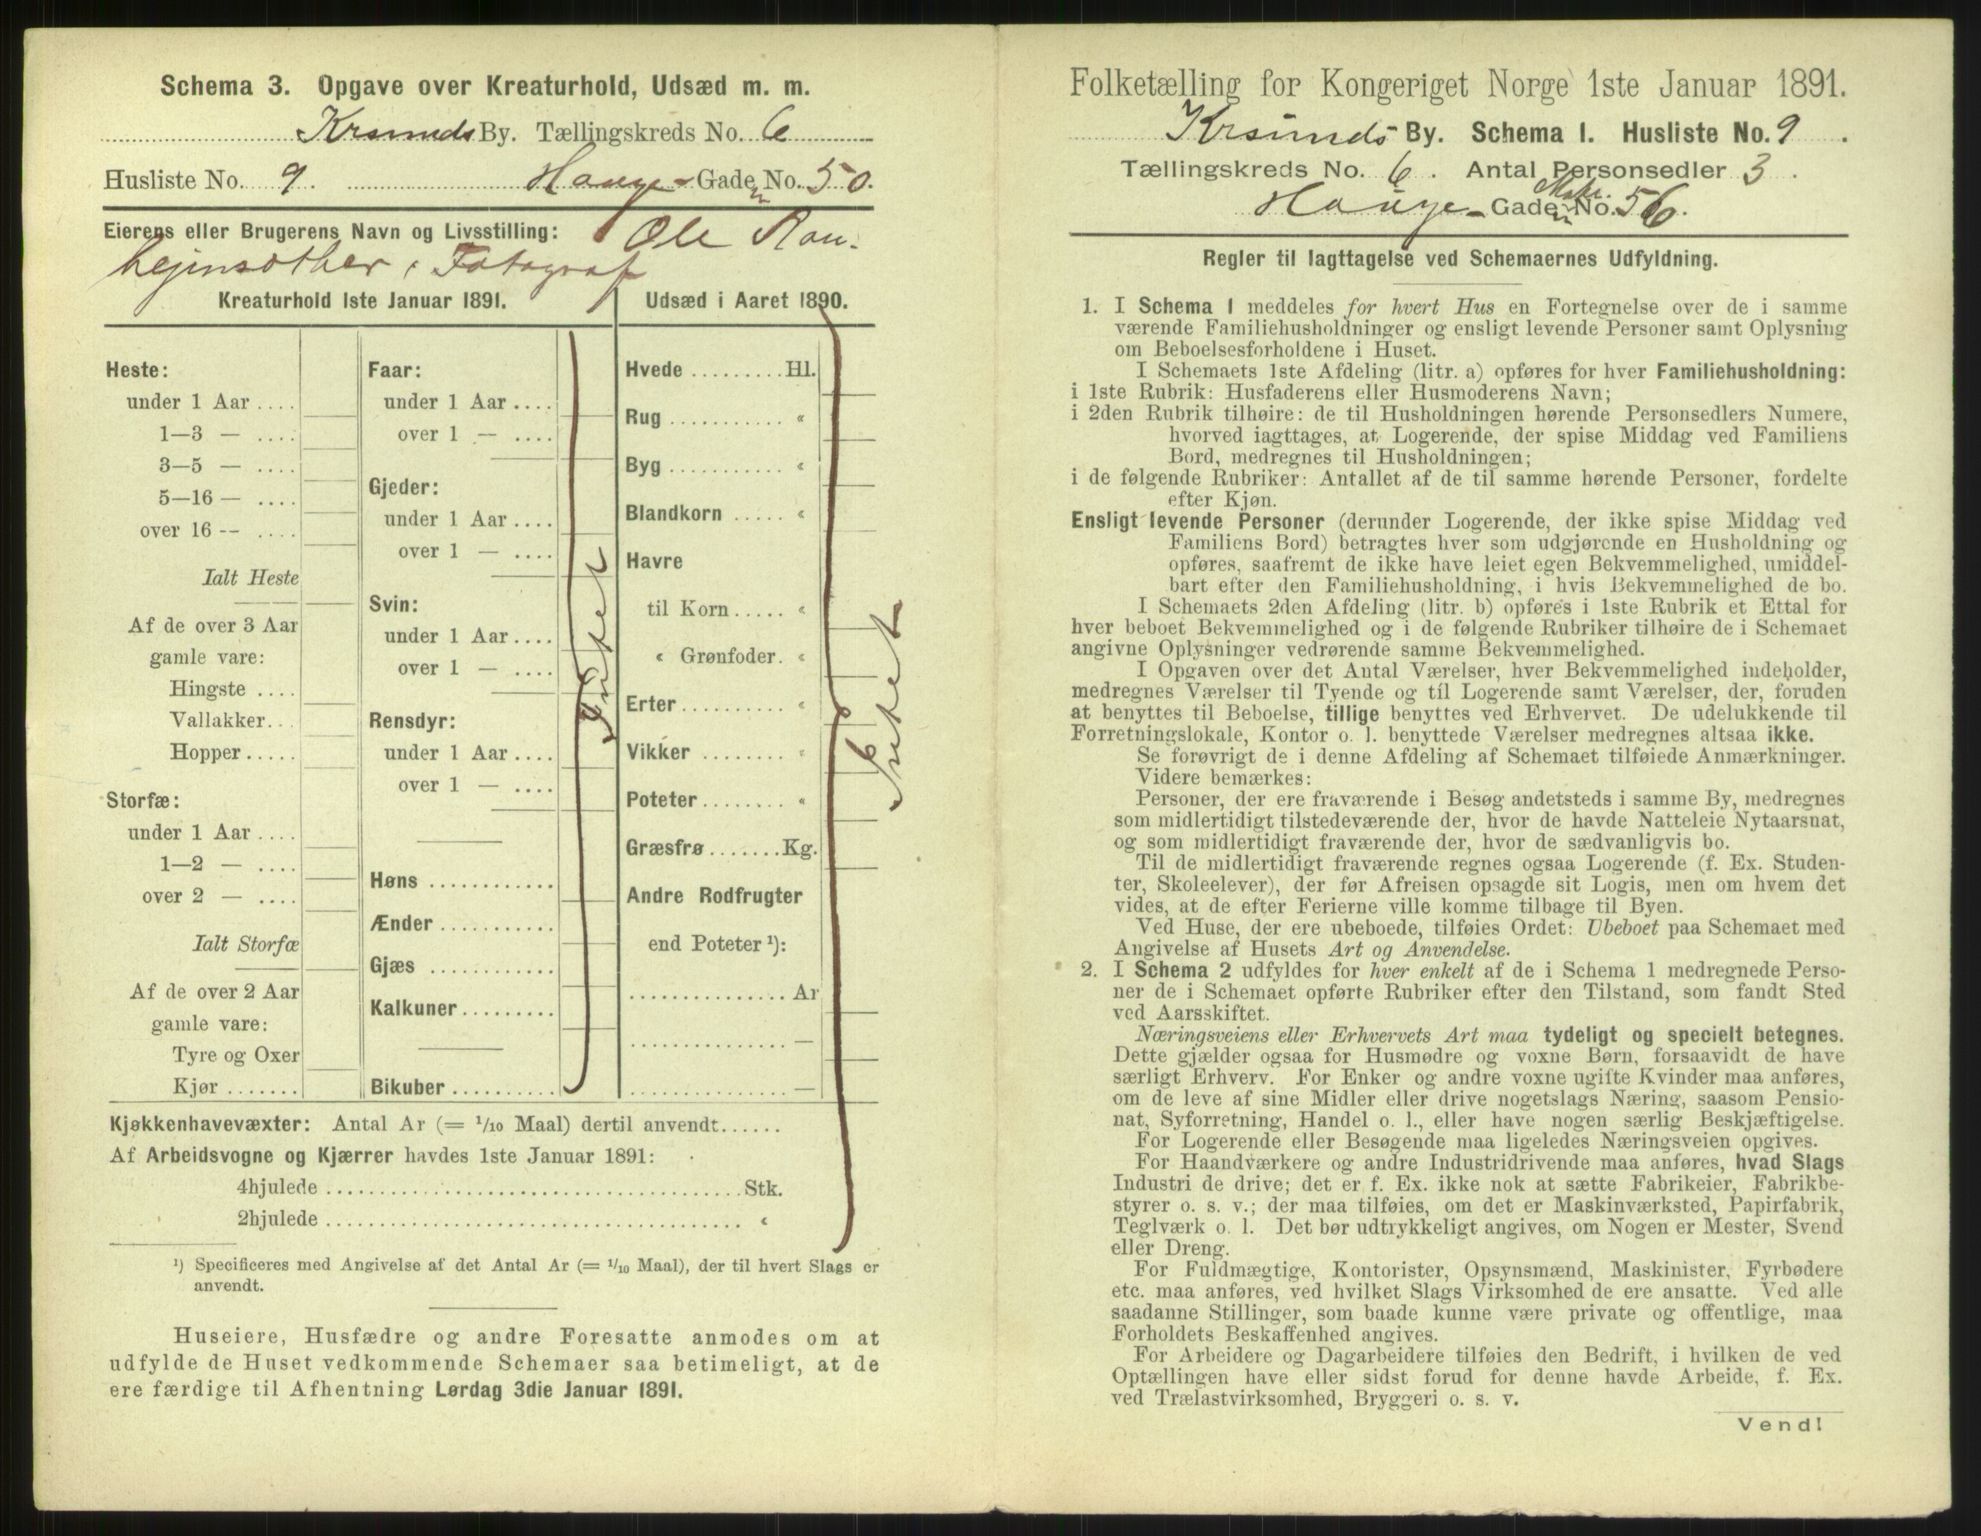 Schema 3. Opgave over Kreaturhold, Udsæd m. m.
Krsunds By. Tællingskreds No. 6
Husliste No. 9. Hauge- Gaden No. 50.
Eierens eller Brugerens Navn og Livsstilling: Ole Ran-
hejmsæther, Fotograf
Kreaturhold 1ste Januar 1891.
Heste:
under 1 Aar ....
1—3 — ....
3—5 — ....
5—16 — ....
over 16 -- ....
Ialt Heste
Af de over 3 Aar
gamle vare:
Hingste ....
Vallakker...
Hopper.....
Storfæ:
under 1 Aar ....
1—2 — ....
over 2 — ....
Ialt Storfæ
Af de over 2 Aar
gamle vare:
Tyre og Oxer
Kjør .......
Faar:
under 1 Aar ....
over 1 — ....
Gjeder:
under 1 Aar ....
over 1 — ....
Svin:
under 1 Aar ....
over 1 — ....
Rensdyr:
under 1 Aar ....
over 1 — ....
Høns ............
Ænder ...........
Gjæs ............
Kalkuner.........
Bikuber..........
Intet
Udsæd i Aaret 1890.
Hvede .........Hl.
Rug ........... «
Byg ........... «
Blandkorn ..... «
Havre
til Korn ..... «
« Grønfoder. «
Erter.......... «
Vikker ........ «
Poteter........ «
Græsfrø.......Kg.
Andre Rodfrugter
end Poteter ¹):
...............Ar
............... —
............... —
Intet
Kjøkkenhavevæxter: Antal Ar (= 1/10 Maal) dertil anvendt......
Af Arbeidsvogne og Kjærrer havdes 1ste Januar 1891:
4hjulede ......................................Stk.
2hjulede ...................................... «
¹) Specificeres med Angivelse af det Antal Ar (= 1/10 Maal), der til hvert Slags er
anvendt.
Huseiere, Husfædre og andre Foresatte anmodes om at
udfylde de Huset vedkommende Schemaer saa betimeligt, at de
ere færdige til Afhentning Lørdag 3die Januar 1891.
Folketælling for Kongeriget Norge 1ste Januar 1891.
Krsunds By. Schema I. Husliste No. 9.
Tællingskreds No. 6. Antal Personsedler 3.
Hauge- Gaden No. 56.
Regler til Iagttagelse ved Schemaernes Udfyldning.
1. I Schema 1 meddeles for hvert Hus en Fortegnelse over de i samme
værende Familiehusholdninger og ensligt levende Personer samt Oplysning
om Beboelsesforholdene i Huset.
I Schemaets 1ste Afdeling (litr. a) opføres for hver Familiehusholdning:
i 1ste Rubrik: Husfaderens eller Husmoderens Navn;
i 2den Rubrik tilhøire: de til Husholdningen hørende Personsedlers Numere,
hvorved iagttages, at Logerende, der spise Middag ved Familiens
Bord, medregnes til Husholdningen;
i de følgende Rubriker: Antallet af de til samme hørende Personer, fordelte
efter Kjøn.
Ensligt levende Personer (derunder Logerende, der ikke spise Middag ved
Familiens Bord) betragtes hver som udgjørende en Husholdning og
opføres, saafremt de ikke have leiet egen Bekvemmelighed, umiddel-
bart efter den Familiehusholdning, i hvis Bekvemmelighed de bo.
I Schemaets 2den Afdeling (litr. b) opføres i 1ste Rubrik et Ettal for
hver beboet Bekvemmelighed og i de følgende Rubriker tilhøire de i Schemaet
angivne Oplysninger vedrørende samme Bekvemmelighed.
I Opgaven over det Antal Værelser, hver Bekvemmelighed indeholder,
medregnes Værelser til Tyende og til Logerende samt Værelser, der, foruden
at benyttes til Beboelse, tillige benyttes ved Erhvervet. De udelukkende til
Forretningslokale, Kontor o. l. benyttede Værelser medregnes altsaa ikke.
Se forøvrigt de i denne Afdeling af Schemaet tilføiede Anmærkninger.
Videre bemærkes:
Personer, der ere fraværende i Besøg andetsteds i samme By, medregnes
som midlertidigt tilstedeværende der, hvor de havde Natteleie Nytaarsnat,
og som midlertidigt fraværende der, hvor de sædvanligvis bo.
Til de midlertidigt fraværende regnes ogsaa Logerende (f. Ex. Studen-
ter, Skoleelever), der før Afreisen opsagde sit Logis, men om hvem det
vides, at de efter Ferierne ville komme tilbage til Byen.
Ved Huse, der ere ubeboede, tilføies Ordet: Ubeboet paa Schemaet med
Angivelse af Husets Art og Anvendelse.
2. I Schema 2 udfyldes for hver enkelt af de i Schema 1 medregnede Perso-
ner de i Schemaet opførte Rubriker efter den Tilstand, som fandt Sted
ved Aarsskiftet.
Næringsveiens eller Erhvervets Art maa tydeligt og specielt betegnes.
Dette gjælder ogsaa for Husmødre og voxne Børn, forsaavidt de have
særligt Erhverv. For Enker og andre voxne ugifte Kvinder maa anføres,
om de leve af sine Midler eller drive nogetslags Næring, saasom Pensio-
nat, Syforretning, Handel o. l., eller have nogen særlig Beskjæftigelse.
For Logerende eller Besøgende maa ligeledes Næringsveien opgives.
For Haandværkere og andre Industridrivende maa anføres, hvad Slags
Industri de drive; det er f. Ex. ikke nok at sætte Fabrikeier, Fabrikbe-
styrer o. s. v.; der maa tilføies, om det er Maskinværksted, Papirfabrik,
Teglværk o. l. Det bør udtrykkeligt angives, om Nogen er Mester, Svend
eller Dreng.
For Fuldmægtige, Kontorister, Opsynsmænd, Maskinister, Fyrbødere
etc. maa anføres, ved hvilket Slags Virksomhed de ere ansatte. Ved alle
saadanne Stillinger, som baade kunne være private og offentlige, maa
Forholdets Beskaffenhed angives.
For Arbeidere og Dagarbeidere tilføies den Bedrift, i hvilken de ved
Optællingen have eller sidst forud for denne havde Arbeide, f. Ex.
ved Trælastvirksomhed, Bryggeri o. s. v.
Vend!